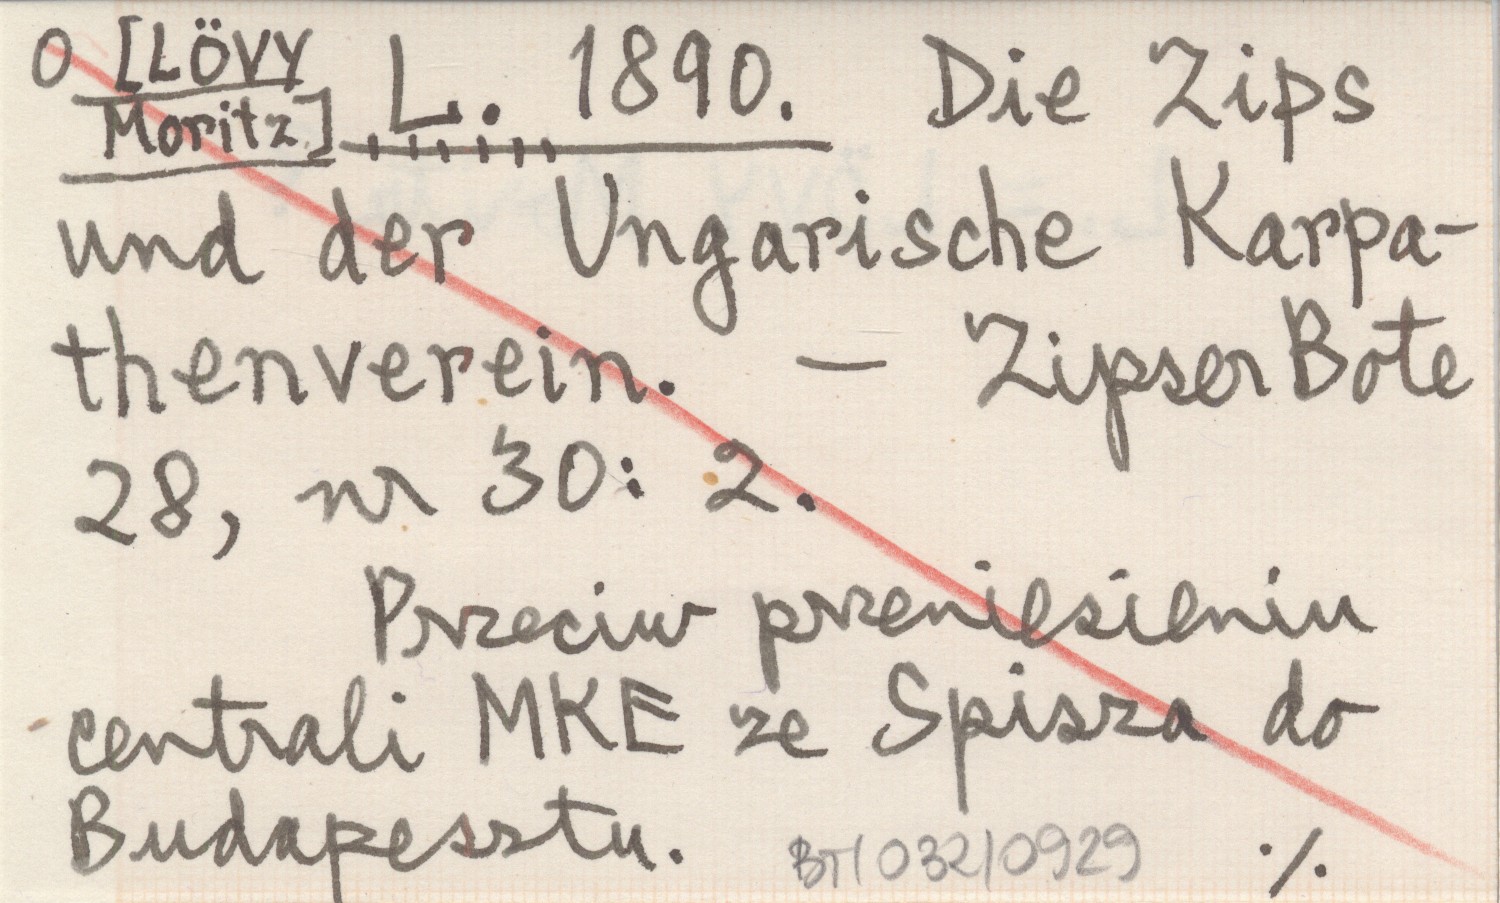 O [LÖVY Moritz] L. 1890. Die Zips
und der Ungarische Karpa-
thenverein. — Zipser Bote
28, nr 30: 2.
Przeciw przeniesieniu
centrali MKE ze Spisza do
Budapesztu. ./.
BT/032/0929